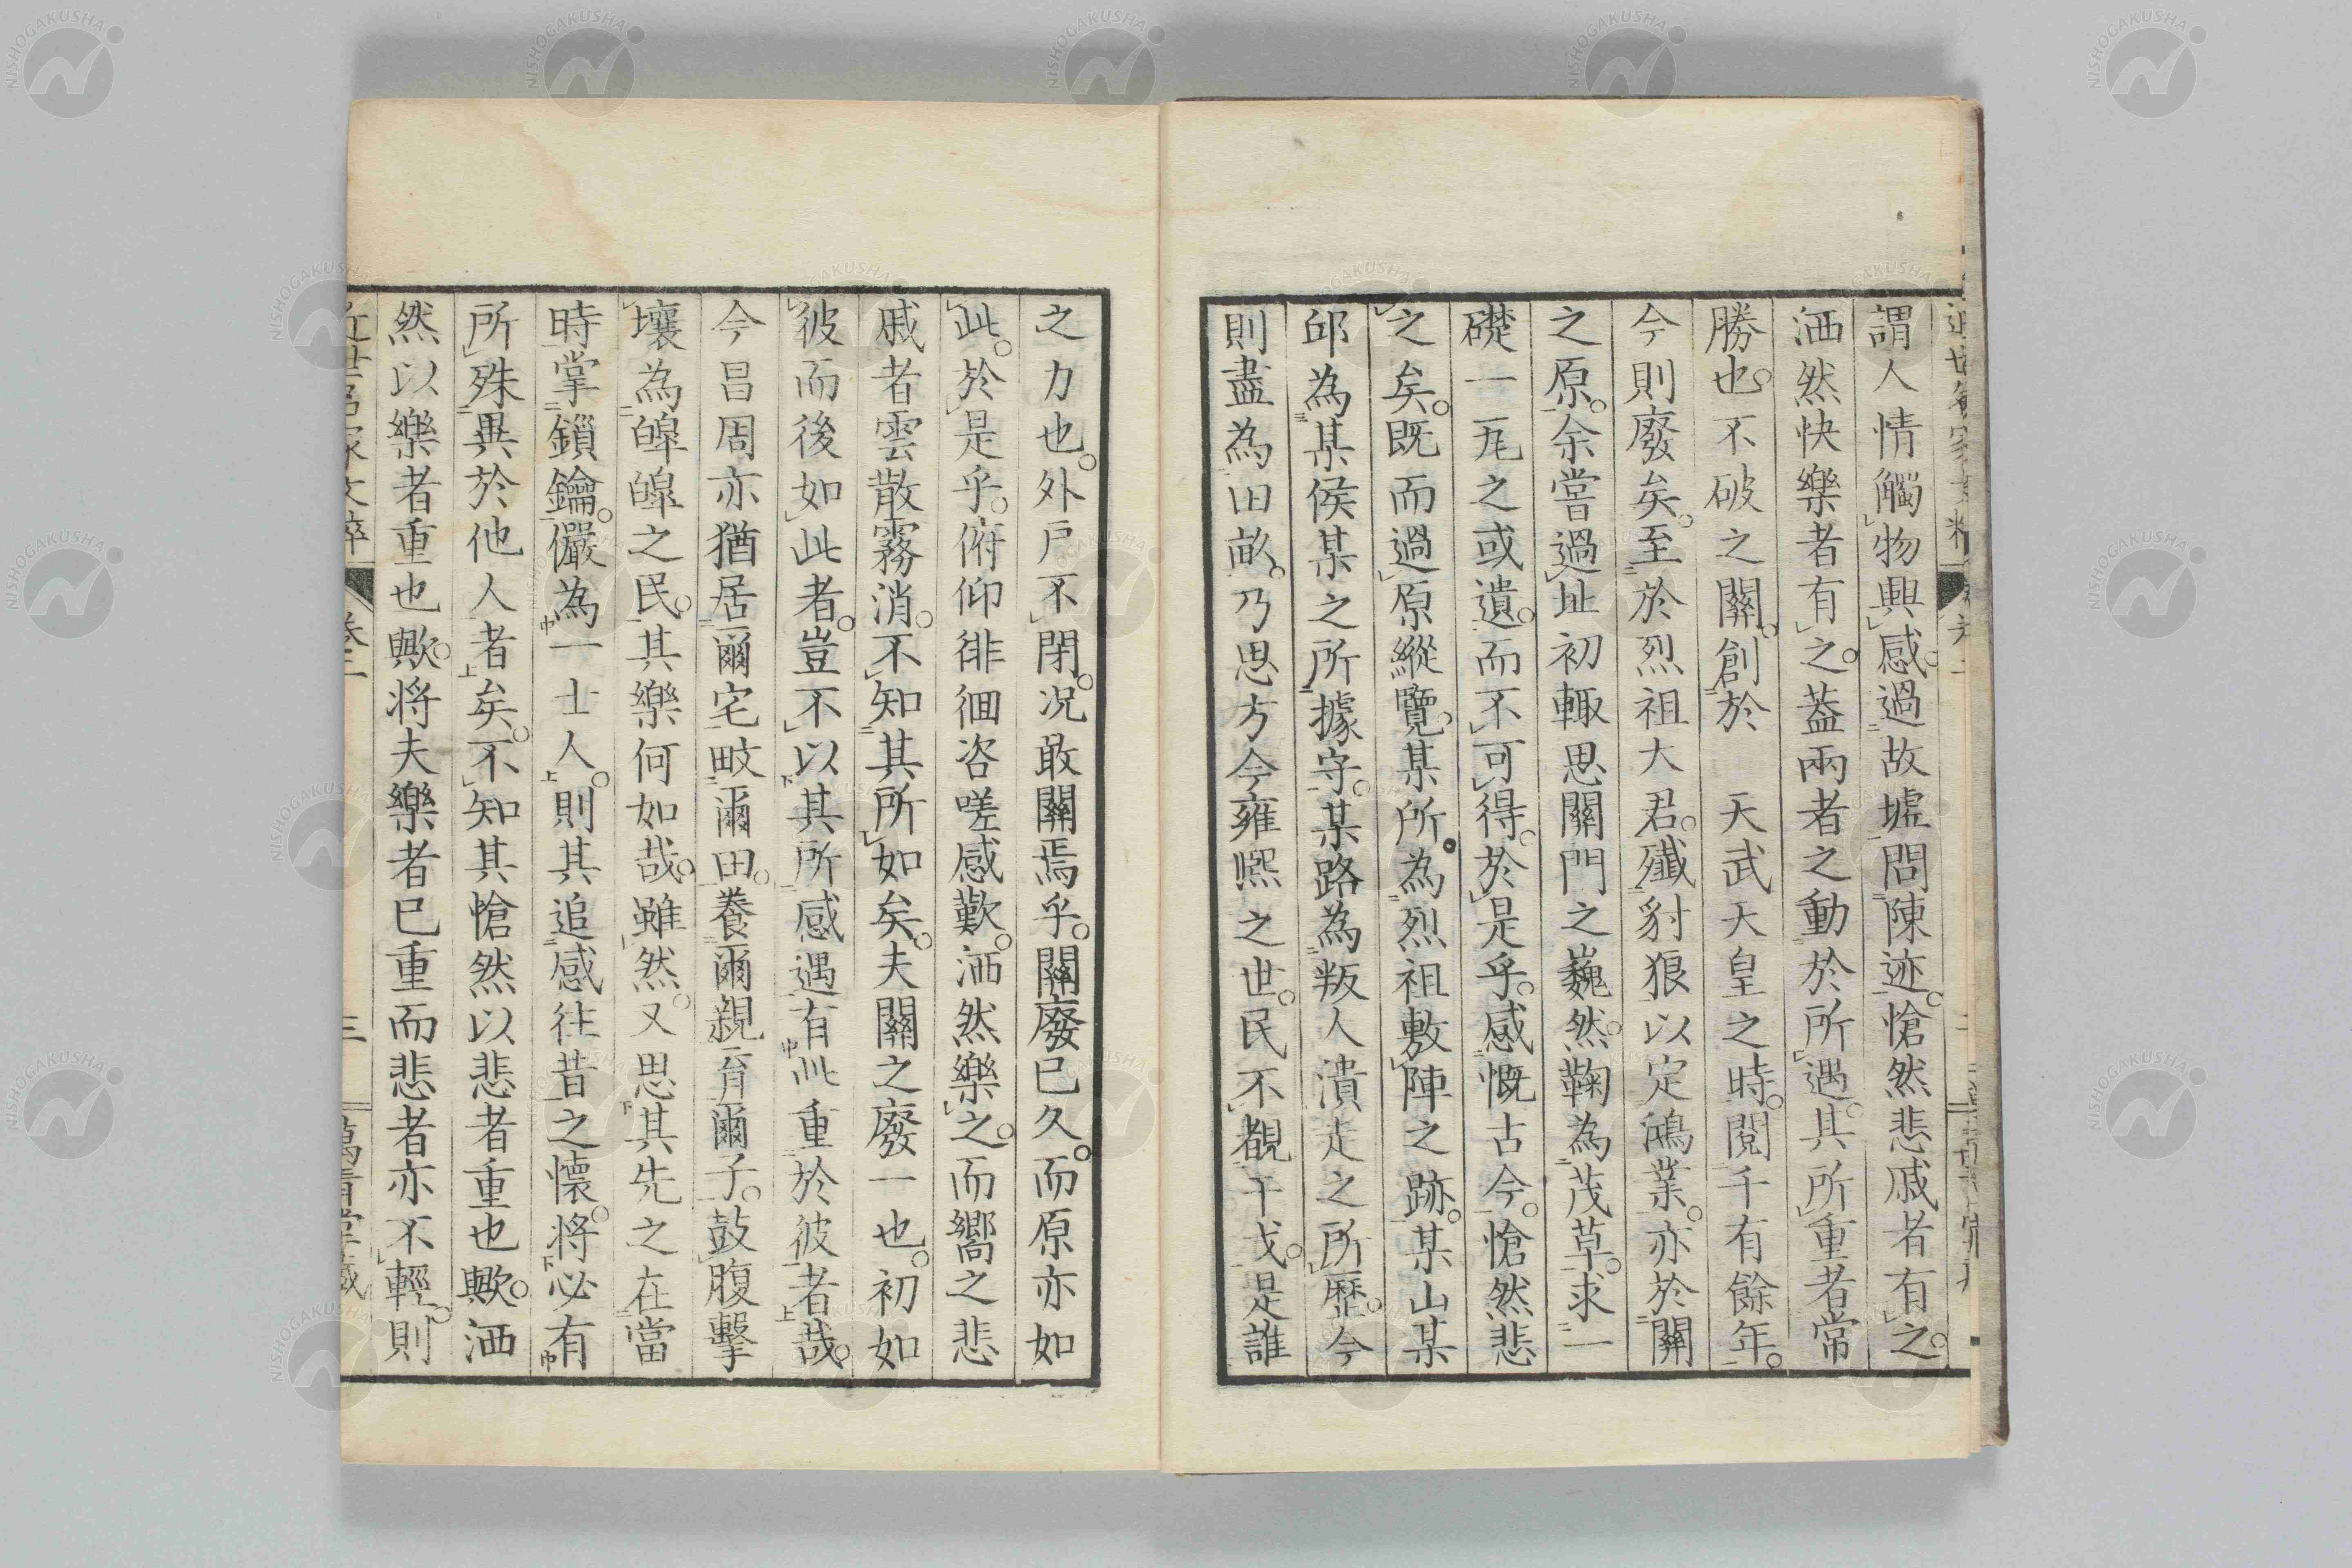 謂人情觸物興感過故墟問陳迹。愴然悲戚者有之。
洒然快樂者有之。蓋兩者之動於所遇。其所重者常
勝也。不破之關。創於　天武天皇之時。閱千有餘年。
今則廢矣。至於烈祖大君。殲豺狼以定鴻業。亦於關
之原。余嘗過址初輙思關門之巍然。鞠為茂草。求一
礎一瓦之或遺。而不可得。於是乎。感慨古今。愴然悲
之矣。既而過原縱覽。某所。為烈祖敷陣之跡。某山某
邱為某侯某之所據守。某路為叛人潰走之所歷。今
則盡為田畝。乃思方今雍熙之世。民不覩干戈。是誰
之力也。外戶不閉。況敢關焉乎。關廢已久。而原亦如
此。於是乎。俯仰徘徊咨嗟感歎。洒然樂之。而嚮之悲
戚者雲散霧消。不知其所如矣。夫關之廢一也。初如
彼而後如此者。豈不以其所感遇有此重於彼者哉。
今昌周亦猶居爾宅畋爾田。養爾親育爾子。鼓腹擊
壤為皞皞之民。其樂何如哉。雖然。又思其先之在當
時掌鎖鑰。儼為一士人。則其追感往昔之懷。將必有
所殊異於他人者矣。不知其愴然以悲者重也歟。洒
然以樂者重也歟。將夫樂者已重而悲者亦不輕。則
近世名家文粹　卷二　三　萬青堂藏